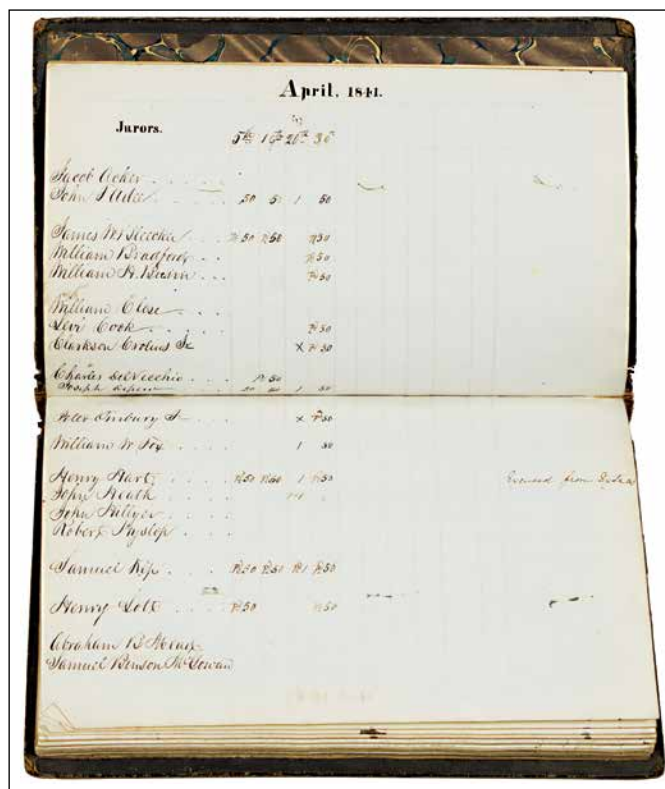 April, 1841.
Jurors.
5th 20th 30
Jacob Acker
John I Adee 50 50 1 50
James W Bleecker 50 50 50
William Bradford 50
William H. Bunn 50
William Close
Levi Cook 50
Clarkson Crolius Jr X 50
Charles Del Vecchio 50
Joseph 50 50 1 50
Peter Embury Jr x 50
William W Fox 1 50
Henry Hart 50 50 1 50 Excused from
John Heath
John Hillyer
Robert Hyslop
Samuel Kip 50 50 1 50
Henry Lott 50 50
Abraham B
Samuel Benson McGowan